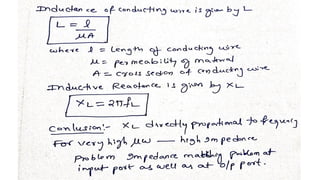 Inductance of conducting wire is given by L
L = l/μA
where l = length of conducting wire
μ = permeability of material
A = cross section of conducting wire
Inductive Reactance is given by XL
XL = 2πfL
Conlusion:- XL directly propotional to frequency
For very high μw — high Impedance
Problem Impedance matching problem at
input port as well as at o/p port.